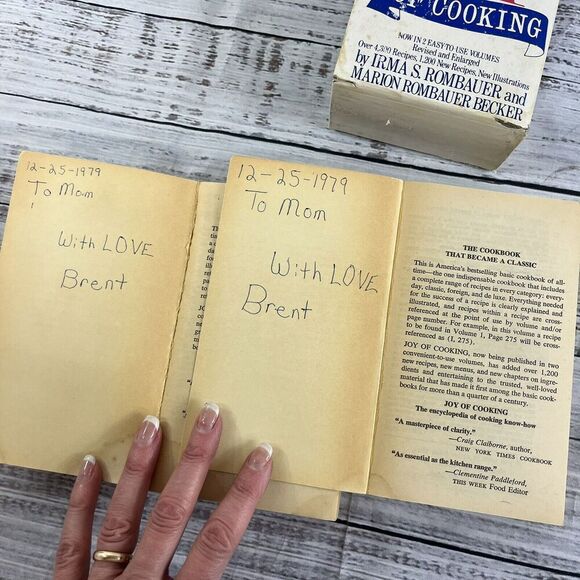 OF COOKING
NOW IN 2 EASY-TO-USE VOLUMES
Revised and Enlarged
Over 4,300 Recipes, 1,200 New Recipes, New Illustrations
by IRMA S. ROMBAUER and
MARION ROMBAUER BECKER
12-25-1979
To Mom
With LOVE
Brent
12-25-1979
To Mom
With LOVE
Brent
THE COOKBOOK
THAT BECAME A CLASSIC
This is America's bestselling basic cookbook of all-
time—the one indispensable cookbook that includes
a complete range of recipes in every category: every-
day, classic, foreign, and de luxe. Everything needed
for the success of a recipe is clearly explained and
illustrated, and recipes within a recipe are cross-
referenced at the point of use by volume and/or
page number. For example, in this volume a recipe
to be found in Volume 1, Page 275 will be cross-
referenced as (I, 275).
JOY OF COOKING, now being published in two
convenient-to-use volumes, has added over 1,200
new recipes, new menus, and new chapters on ingre-
dients and entertaining to the trusted, well-loved
material that has made it first among the basic cook-
books for more than a quarter of a century.
JOY OF COOKING
The encyclopedia of cooking know-how
"A masterpiece of clarity."
—Craig Claiborne, author,
NEW YORK TIMES COOKBOOK
"As essential as the kitchen range."
—Clementine Paddleford,
THIS WEEK Food Editor